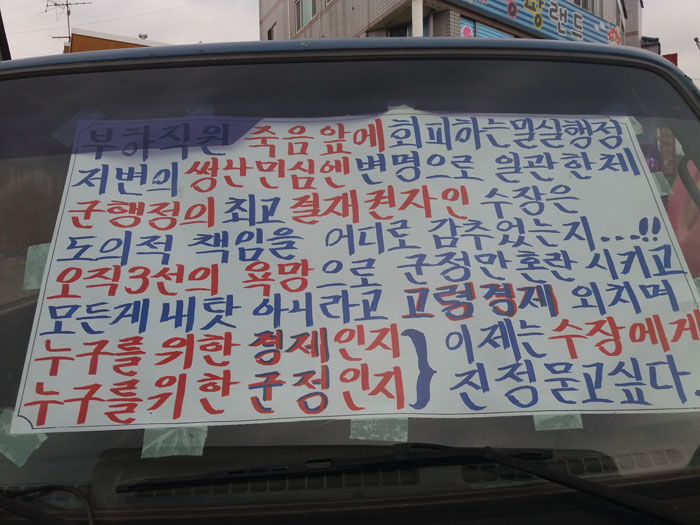 랜드
부하직원 죽음앞에 회피하는밀실행정
저변의 썽난민심엔 변명으로 일관한제
군행정의 최고 결재권자인 수장은
도의적 책임을 어디로 감추었는지....!!
오직3선의 욕망으로 군정만혼란 시키고
모든게내탓 아니라고 고령경제 외치며
누구를 위한 경제인지 } 이제는 수장에게
누구를위한 군정인지 } 진정묻고싶다.